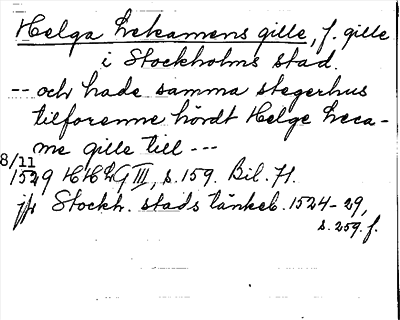 Helga Lekamens gille, f. gille
i Stockholms stad.
-- och hade samma stegerhus
tilforenne hördt Helge Leca-
me gille till ---
8/11
1529 HH G III, s. 159. Bil. 71.
jfr Stockh. stads tänkeb. 1524-29,
s. 259. f.